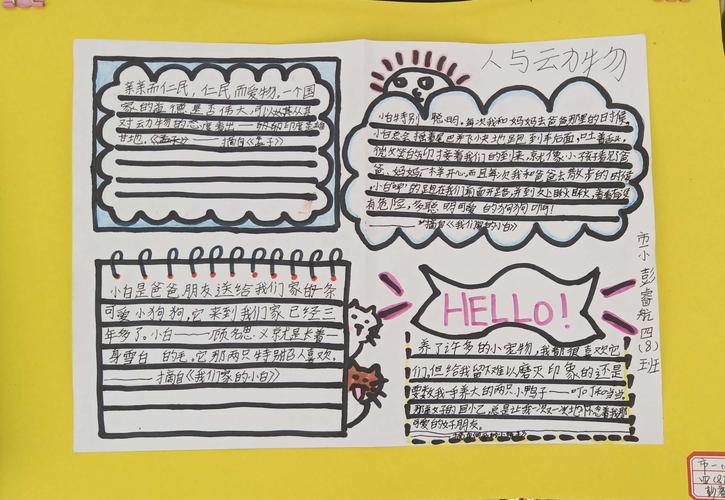 人与动物
亲亲而仁民，仁民而爱物。一个国
家的道德是否伟大，可以从其从其
对动物的态度看出——
甘地。《孟子》——摘自《孟子》
小白特别聪明，每次我和妈妈去爸爸那里的日时候，
小白总会摇着尾巴来飞小央地跑到车后面，吐着舌头，
爸、妈妈一样开心，而且每次我和爸爸去散步的时候
有危险，多聪明可爱的狗狗啊！
——摘自《我们家的小白》
小白是爸爸朋友送给我们家的一条
可爱小狗狗，它来到我们家已经三
年多了。小白——顾名思义就是长着一
身雪白的毛。它那两只特别召人喜欢，
——摘自《我们家的小白》
HELLO!
养了许多的小宠物，我都很喜欢它
们，但给我留难以磨灭印象的还是
要数我手养大的两只小鸭子——叮叮和当当
可爱的好朋友。
市一小 彭睿航 四(8)班
市一
四(8)